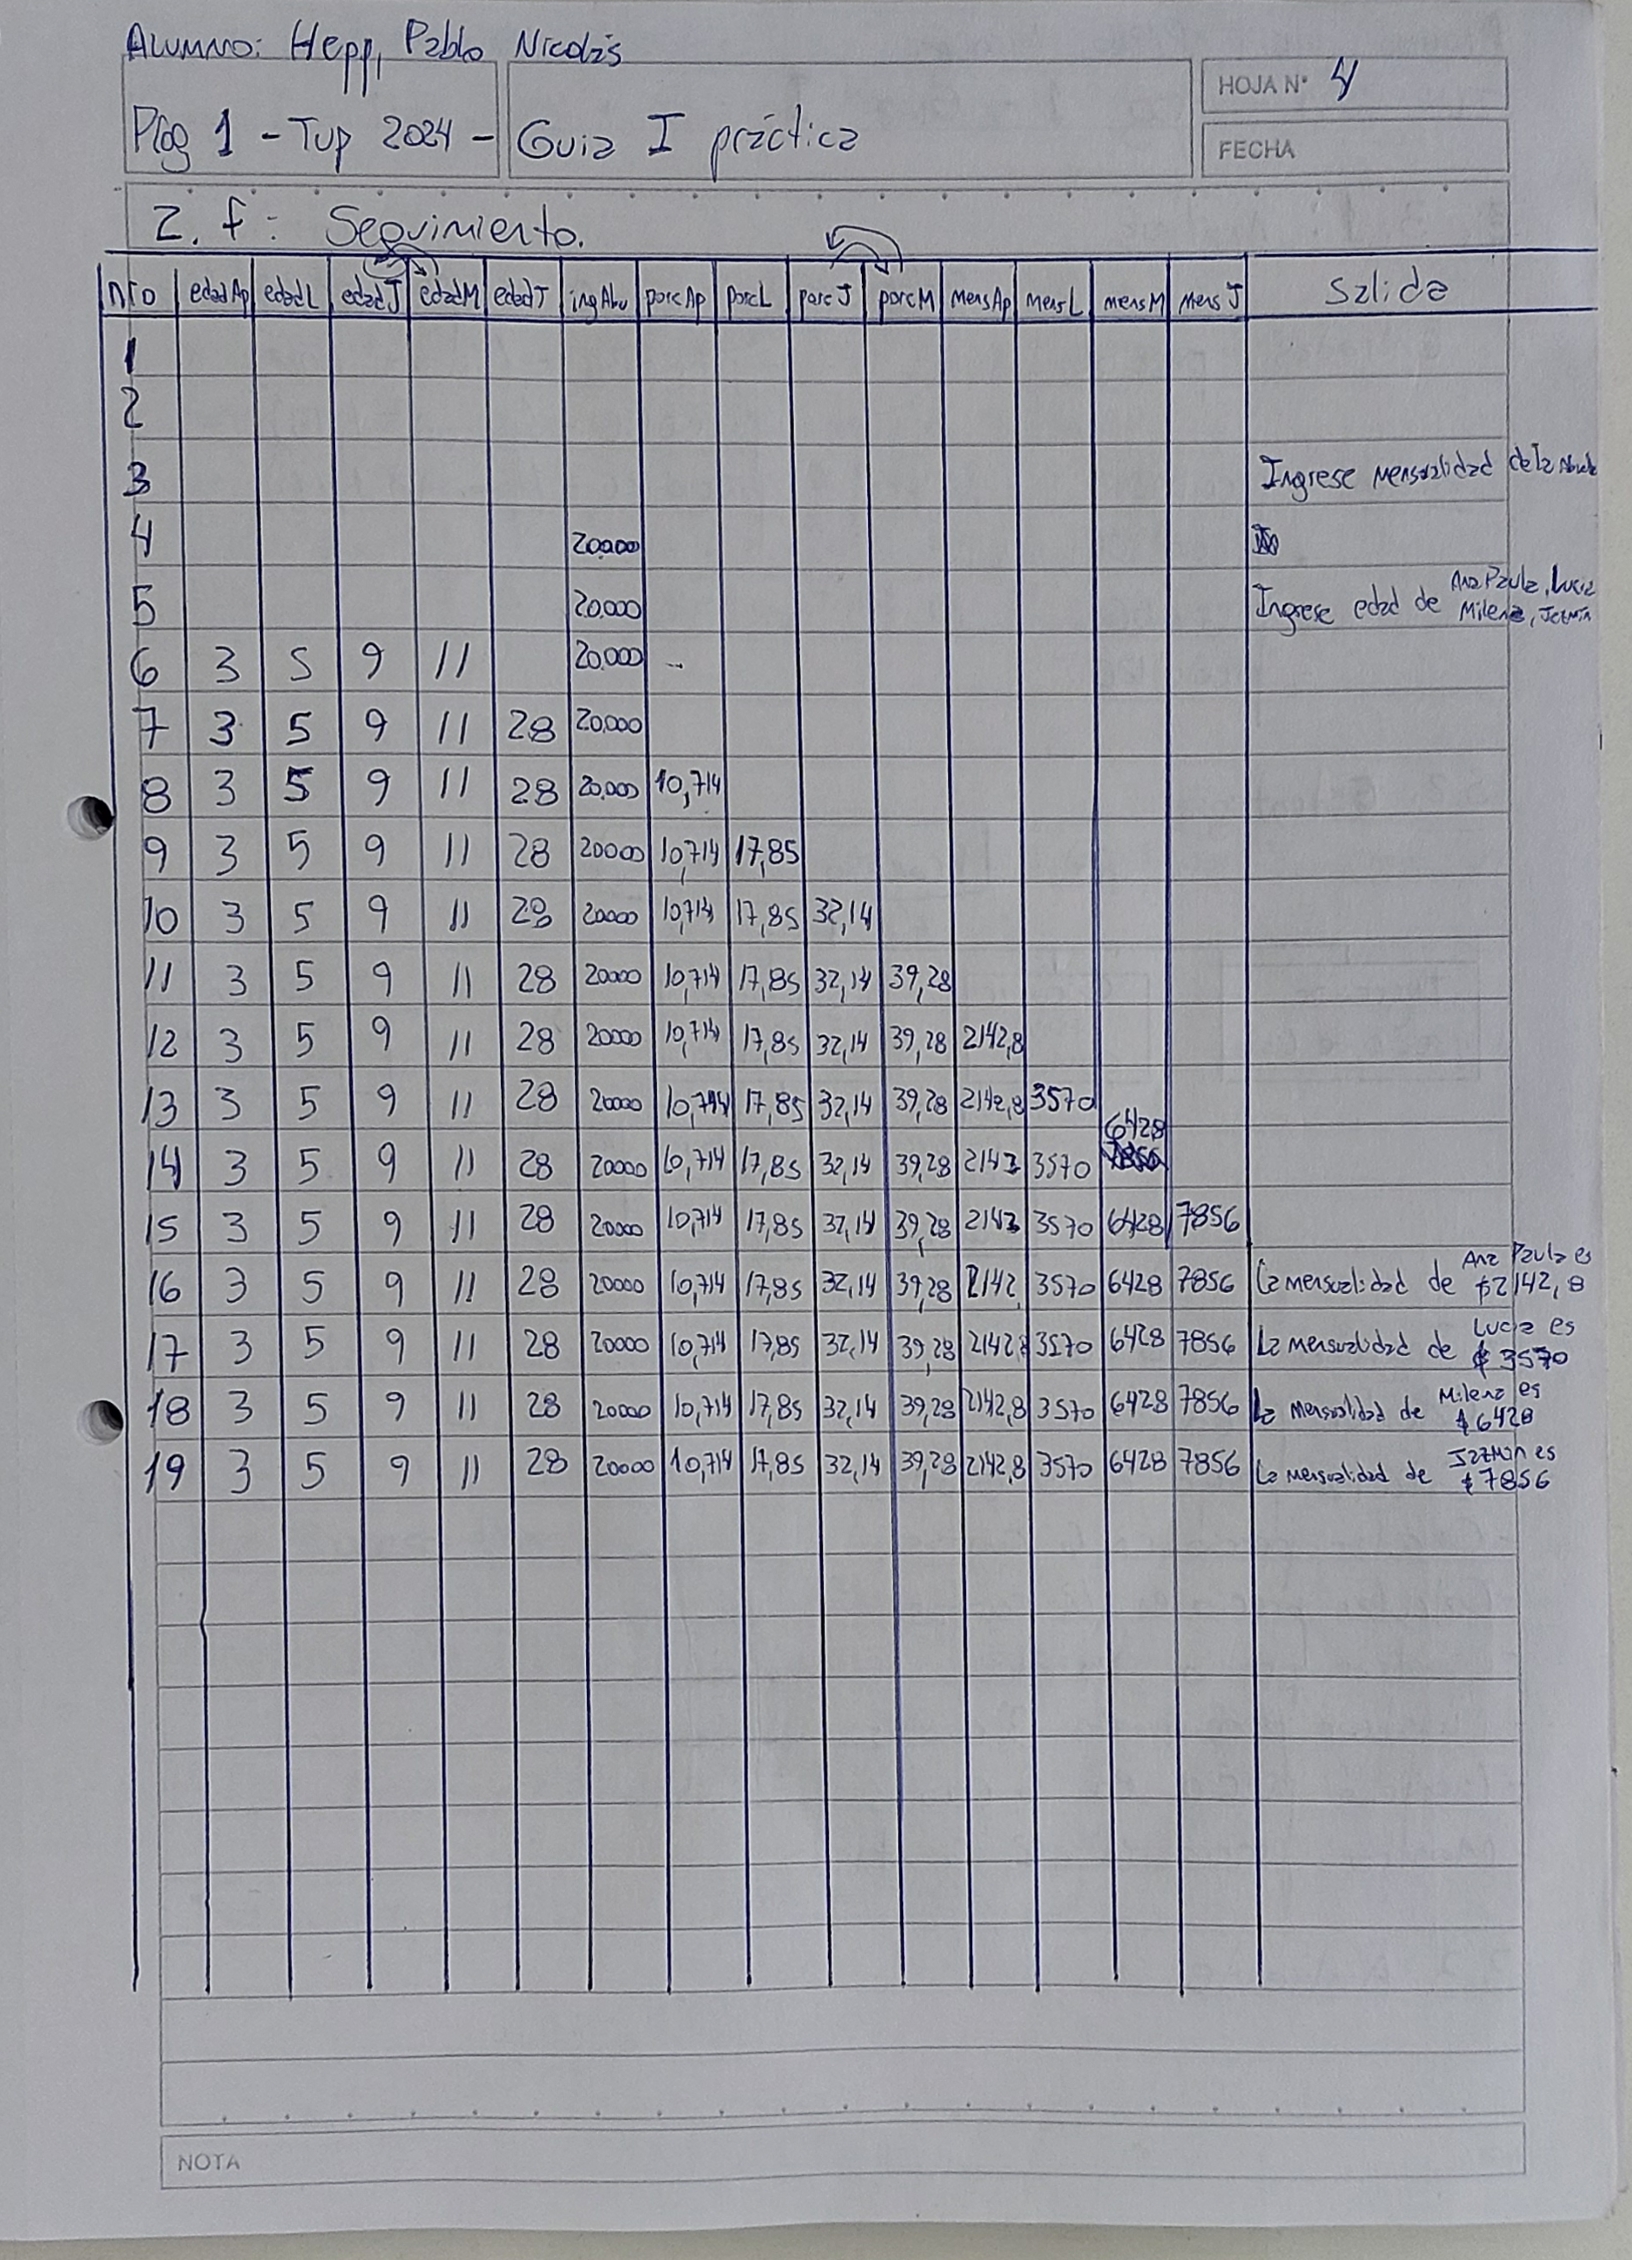 Alumno: Hepp, Pablo Nicolás
HOJA N° 4
Prog 1 - Tup 2024 - Guia I práctica
FECHA
2. f: Seguimiento.
nro edadAp edadL edadJ edadM edadT ingAbu porcAp porcL porcJ porcM mensAp mensL mensM mensJ Salida
1
2
3 Ingrese mensualidad de la Abuela
4 20.000
5 20.000 Ingrese edad de Ana Paula, Lucia Milena, Jazmin
6 3 5 9 11 20.000
7 3 5 9 11 28 20.000
8 3 5 9 11 28 20.000 10,714
9 3 5 9 11 28 20000 10,714 17,85
10 3 5 9 11 28 20000 10,714 17,85 32,14
11 3 5 9 11 28 20000 10,714 17,85 32,14 39,28
12 3 5 9 11 28 20000 10,714 17,85 32,14 39,28 2142,8
13 3 5 9 11 28 20000 10,714 17,85 32,14 39,28 2142,8 3570
14 3 5 9 11 28 20000 10,714 17,85 32,14 39,28 2142 3570 6428
15 3 5 9 11 28 20000 10,714 17,85 32,14 39,28 2142 3570 6428 7856
16 3 5 9 11 28 20000 10,714 17,85 32,14 39,28 2142 3570 6428 7856 La mensualidad de Ana Paula es $2142,8
17 3 5 9 11 28 20000 10,714 17,85 32,14 39,28 2142,8 3570 6428 7856 La mensualidad de Lucia es $ 3570
18 3 5 9 11 28 20000 10,714 17,85 32,14 39,28 2142,8 3570 6428 7856 La mensualidad de Milena es $6428
19 3 5 9 11 28 20000 10,714 17,85 32,14 39,28 2142,8 3570 6428 7856 La mensualidad de Jazmin es $7856
NOTA